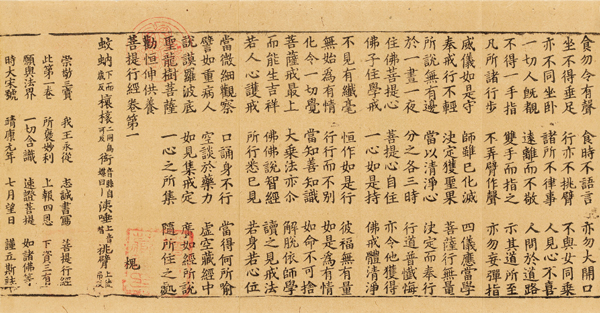 食勿令有聲 食時不語言 亦勿大開口
坐不得垂足 行亦不挑臂 不與女同乘
亦不同坐臥 諸所不律事 人見心不喜
一切人既覩 遠離而不敬 人間於道路
不得一手指 雙手而指之 示其道所至
凡所諸行步 不弄臂作聲 亦勿妄彈指
威儀如是守 師雖已化滅 四儀應當學
奉戒行不輕 決定獲聖果 菩薩行無量
所說無有邊 當以清淨心 決定而奉行
於一晝一夜 分之各三時 行道普懺悔
住佛菩提心 菩提心自住 亦令他獲得
佛子住學戒 佛戒體清淨
不見有纖毫 恒作如是行 彼福無有量
無始為有情 行行而不別 如是為有情
化令一切覺 當知善知識 如命不可捨
菩薩戒最上 大乘法亦令 解脫依師學
而能生吉祥 佛佛說智經 讀之見戒法
若人心護戒 所行悉已見 若身若心位
當微細觀察 口誦身不行 當得何所喻
譬如重病人 空談於藥力 虛空藏經中
說謨羅波底 如見集戒定 廣如經所說
聖龍樹菩薩 一心之所集 隨所住之處
勸恒伸供養
菩提行經卷第一 槐
蚊蚋
崇勸三寶 我王永從 志誠書寫 菩提行經
此第一卷 所褒妙利 上報四恩 下資三有
願與法界 一切含識 速證菩提 如諸佛等
時大宋號 靖康元年 七月望日 謹立斯誌